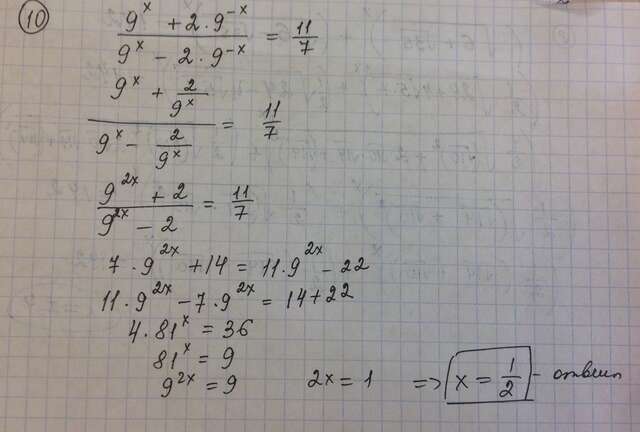 10
9^x + 2·9^-x / 9^x - 2·9^-x = 11/7
9^x + 2/9^x / 9^x - 2/9^x = 11/7
9^2x + 2 / 9^2x - 2 = 11/7
7·9^2x + 14 = 11·9^2x - 22
11·9^2x - 7·9^2x = 14 + 22
4·81^x = 36
81^x = 9
9^2x = 9 2x = 1 => x = 1/2 - ответ